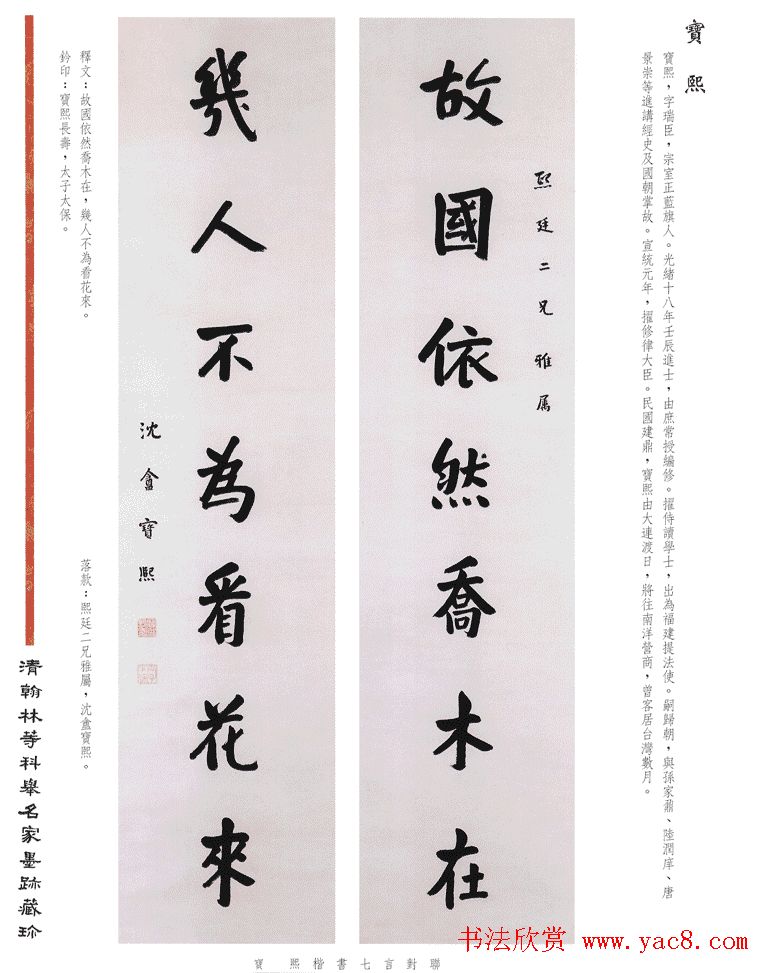 寶熙
寶熙，字瑞臣，宗室正藍旗人。光緒十八年壬辰進士，由庶常授編修。擢侍讀學士，出為福建提法使。嗣歸朝，與孫家鼐、陸潤庠、唐
景崇等進講經史及國朝掌故。宣統元年，擢修律大臣。民國建鼎，寶熙由大連渡日，將往南洋營商，曾客居台灣數月。
熙廷二兄雅属
故國依然喬木在
幾人不為看花來
沈盦寶熙
釋文：故國依然喬木在，幾人不為看花來。
鈐印：寶熙長壽，太子太保。
落款：熙廷二兄雅屬，沈盦寶熙。
清翰林等科舉名家墨跡藏珍
寶熙楷書七言對聯
书法欣赏 www.yac8.com